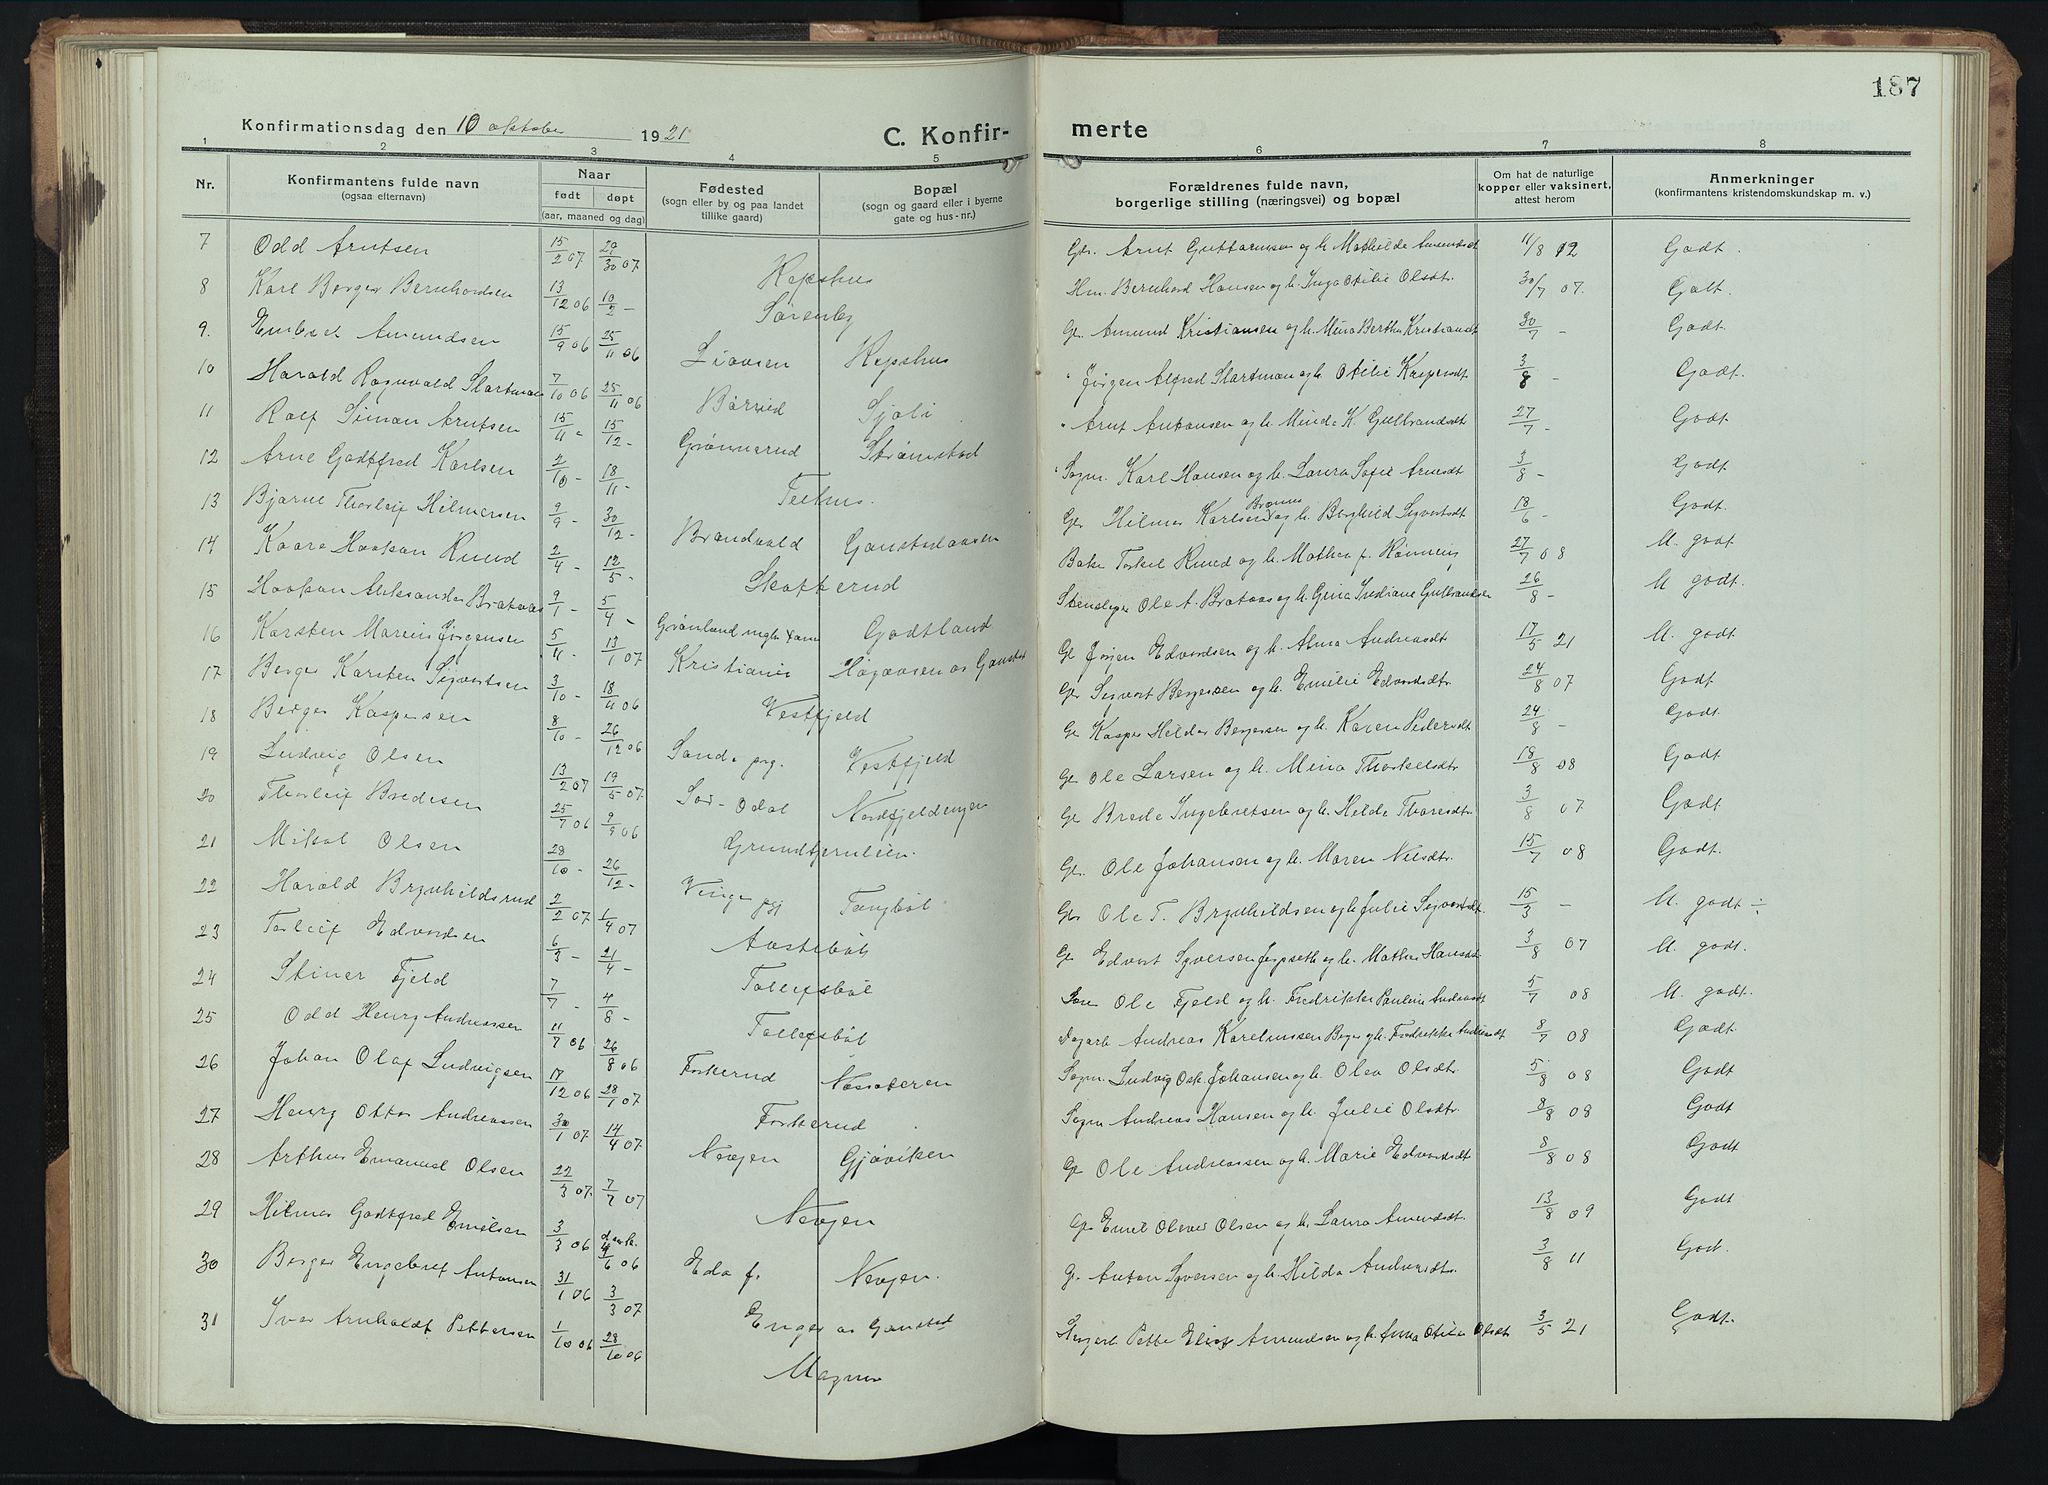 187
Konfirmationsdag den 10 oktober 1921
C. Konfirmerte
1 2 3 4 5 6 7 8
Nr.
Konfirmantens fulde navn
(ogsaa efternavn)
Naar
født døpt
(aar, maaned og dag)
Fødested
(sogn eller by og paa landet
tillike gaard)
Bopæl
(sogn og gaard eller i byerne
gate og hus-nr.)
Forældrenes fulde navn,
borgerlige stilling (næringsvei) og bopæl
Om hat de naturlige
kopper eller vaksinert,
attest herom
Anmerkninger
(konfirmantens kristendomskundskap m. v.)
7 Odd Arntsen 15/2 07 29/30 07 Kjepshus Gbr. Arnt Guttormsen og h. Mathilde Amundsdt 11/8 12 Godt.
8 Karl Borger Bernhardsen 13/12 06 10/2 - Sørenby Hm. Bernhard Hansen og h. Inga Otilie Olsdt. 30/7 07. Godt.
9. Embret Amundsen 15/9 06 25/11 06 Liaasen Kjepshus Gbr. Amund Kristiansen og h. Mina Berthe Kristiansdt 30/7 - Godt.
10 Harald Ragnvald Slartman 7/10 06 25/11 06 Børlied Sjøli " Jørgen Alfred Slartman og h. Otilie Kaspersdt 3/8 - Godt.
11 Rolf Simon Arntsen 15/11 - 15/12 - Grønnerud Strømstad " Arnt Antonsen og h. Minda K. Gulbrandsdt 27/7 - Godt
12 Arne Godtfred Karlsen 2/10 - 18/11 - Feehus. Sagm. Karl Hansen og h. Laura Sofie Arnesdt 3/8 - Godt
13 Bjarne Thorleif Hilmersen 9/9 - 30/12 - Brandvold Ganstadaasen Gbr Hilmer Karlsen Brænne og h. Borghild Sigvartsdt 18/6 - Godt.
14 Kaare Haakon Ruud 2/4 - 12/5 - Skotterud Baker Torkil Ruud og h. Mathea f. Rønning 27/7 08 M. godt
15 Haakon Aleksander Brataas 9/1 - 5/4 - Grønland Godtland Stenslipe Ole A. Brataas og h. Gina Indiane Gulbrandsen 26/8 - M godt.
16 Karsten Marius Jørgensen 5/11 - 13/1 07 Kristiania Høgaasen av Gansta Gbr Jørgen Edvardsen og h. Alma Andreasdt 17/5 21 M. godt
17 Borger Karsten Sigvartsen 3/10 - 18/11 06 Vestfjeld Gbr Sigvart Borgersen og h. Emilie Edvardsdt. 24/8 07 Godt.
18 Borger Kaspersen 8/10 - 26/12 06 Sande prg. Vestfjeld Gbr Kasper Helder Borgersen og h. Karen Pedersdt 24/8 - Godt
19 Ludvig Olsen 13/2 07 19/5 07. Sør-Odal Nordfjeldengen Gbr Ole Larsen og h. Mina Thorkelsdtr 18/8 08 Godt
20 Thorleif Bredesen 25/7 06 9/9 06 Grundtjernlien. Gbr Brede Ingebretsen og h. Helde Thoresdtr 3/8 07 Godt
21 Mikal Olsen 28/10 - 26/12 - Vinger prg Tangbøl Gbr. Ole Johansen og h. Maren Nilsdtr. 15/7 08 Godt.
22 Harald Brynhildsrud 2/2 07 1/4 07 Aastebøl Gbr Ole T. Brynhildsen og h. Julie Sigvartsdt 15/3 - M. godt ÷
23 Torleif Edvardsen 6/3 - 21/4 - Tollefsbøl Gbr Edvart Syversen Jerpseth og h. Mathea Hansdt 3/8 07 M. godt.
24 Steiner Fjeld 7/7 - 4/8 - Tollefsbøl Sm Ole Fjeld og h. Fredrikke Pauline Andreasdt 5/7 08 M. godt.
25 Odd Henry Andreassen 11/7 06 26/8 06 Forkerud Næssæteren Dagarb Andreas Karelinssen Berger og h. Fredrikke Andreasdt 8/7 08 Godt
26 Johan Olaf Ludvigsen 17/12 06 28/1 07 Forkerud Sagm. Ludvig Osk. Johansen og h. Olea Olsdtr. 5/8 08 Godt
27 Henry Ottar Andreassen 30/1 07 14/4 07 Nevjen Gjøviken Sagm Andreas Hansen og h. Julie Olsdtr. 8/8 08 Godt
28 Arthur Emanuel Olsen 22/3 07. 7/7 07 Nevjen Gbr Ole Andreassen og h. Marie Edvardsdt 8/8 08 Godt
29 Hilmar Godtfred Emilsen 3/3 06 4/6 06 Eda f. Nevjen. Gbr Emil Oliver Olsen og h. Laura Amundsdt. 13/8 09 Godt
30 Borger Engebret Antonsen 31/1 06 3/3 07 Enger av Ganstad Gbr Anton Syversen og h. Hilda Andersdtr. 3/8 11 God.
31 Iver Arnholdt Pettersen 1/10 06 28/10 06 Magnor Petter Amundsen og h. Anna Otilie Olsdt 3/5 21 Godt.